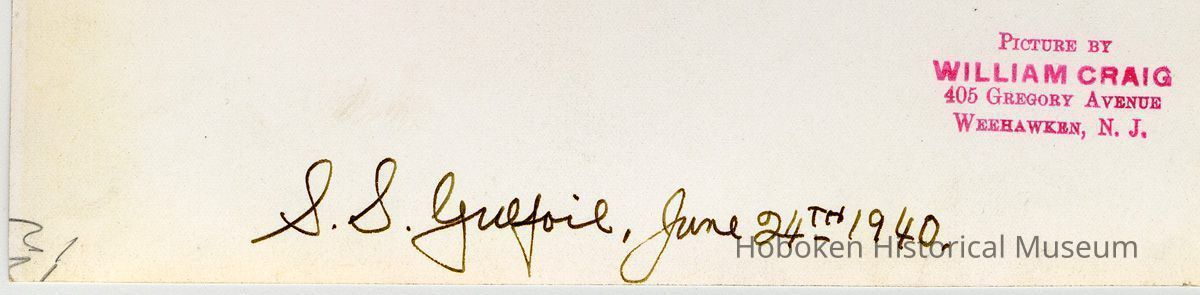 PICTURE BY
WILLIAM CRAIG
405 GREGORY AVENUE
WEEHAWKEN, N. J.
S. S. Gulfoil, June 24TH 1940.
Hoboken Historical Museum